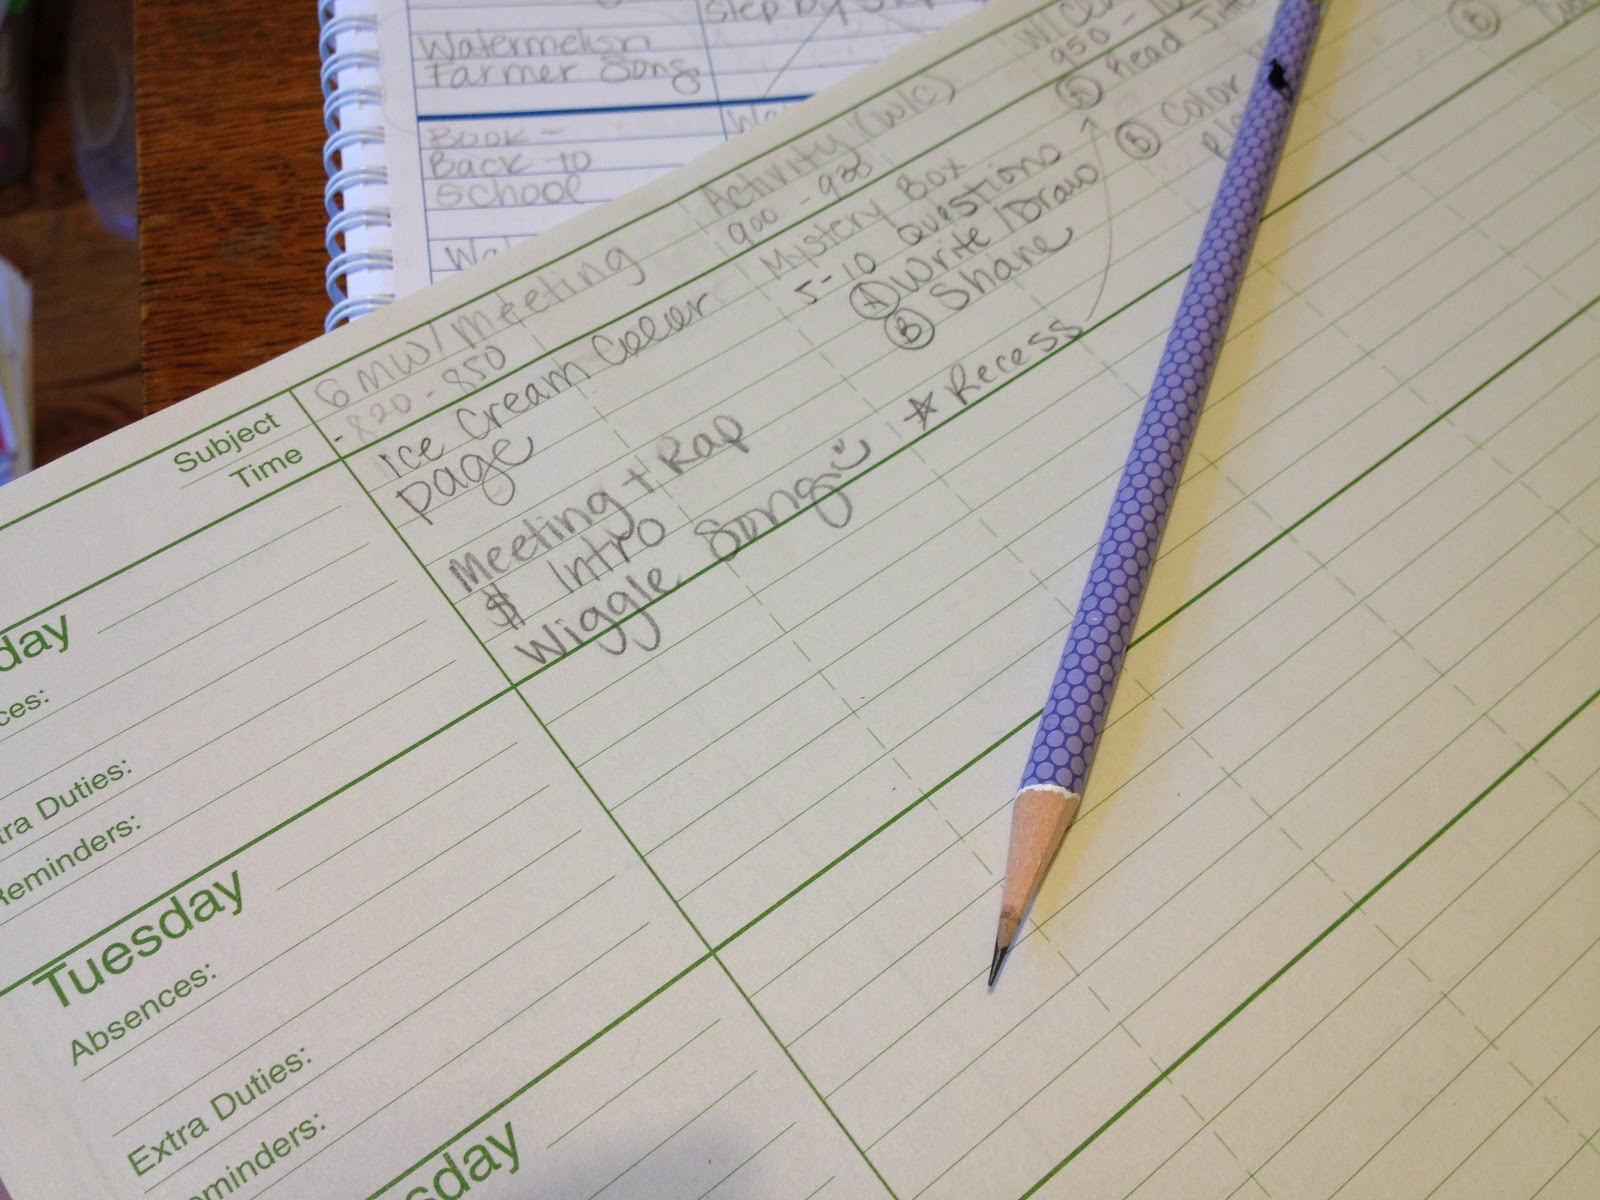 step by step
Watermelon
Farmer Song
Book -
Back to
School
Subject
Time
6 MW/Meeting
- 820 - 850
Ice Cream Color
page
Meeting + Rap
$ Intro
Wiggle Song
Activity (W/C)
900 - 920
Mystery Box
5-10 Questions
A Write/Draw
B Share
☆ Recess
950 -
A Read
B Color
day
ces:
tra Duties:
Reminders:
Tuesday
Absences:
Extra Duties:
minders:
sday